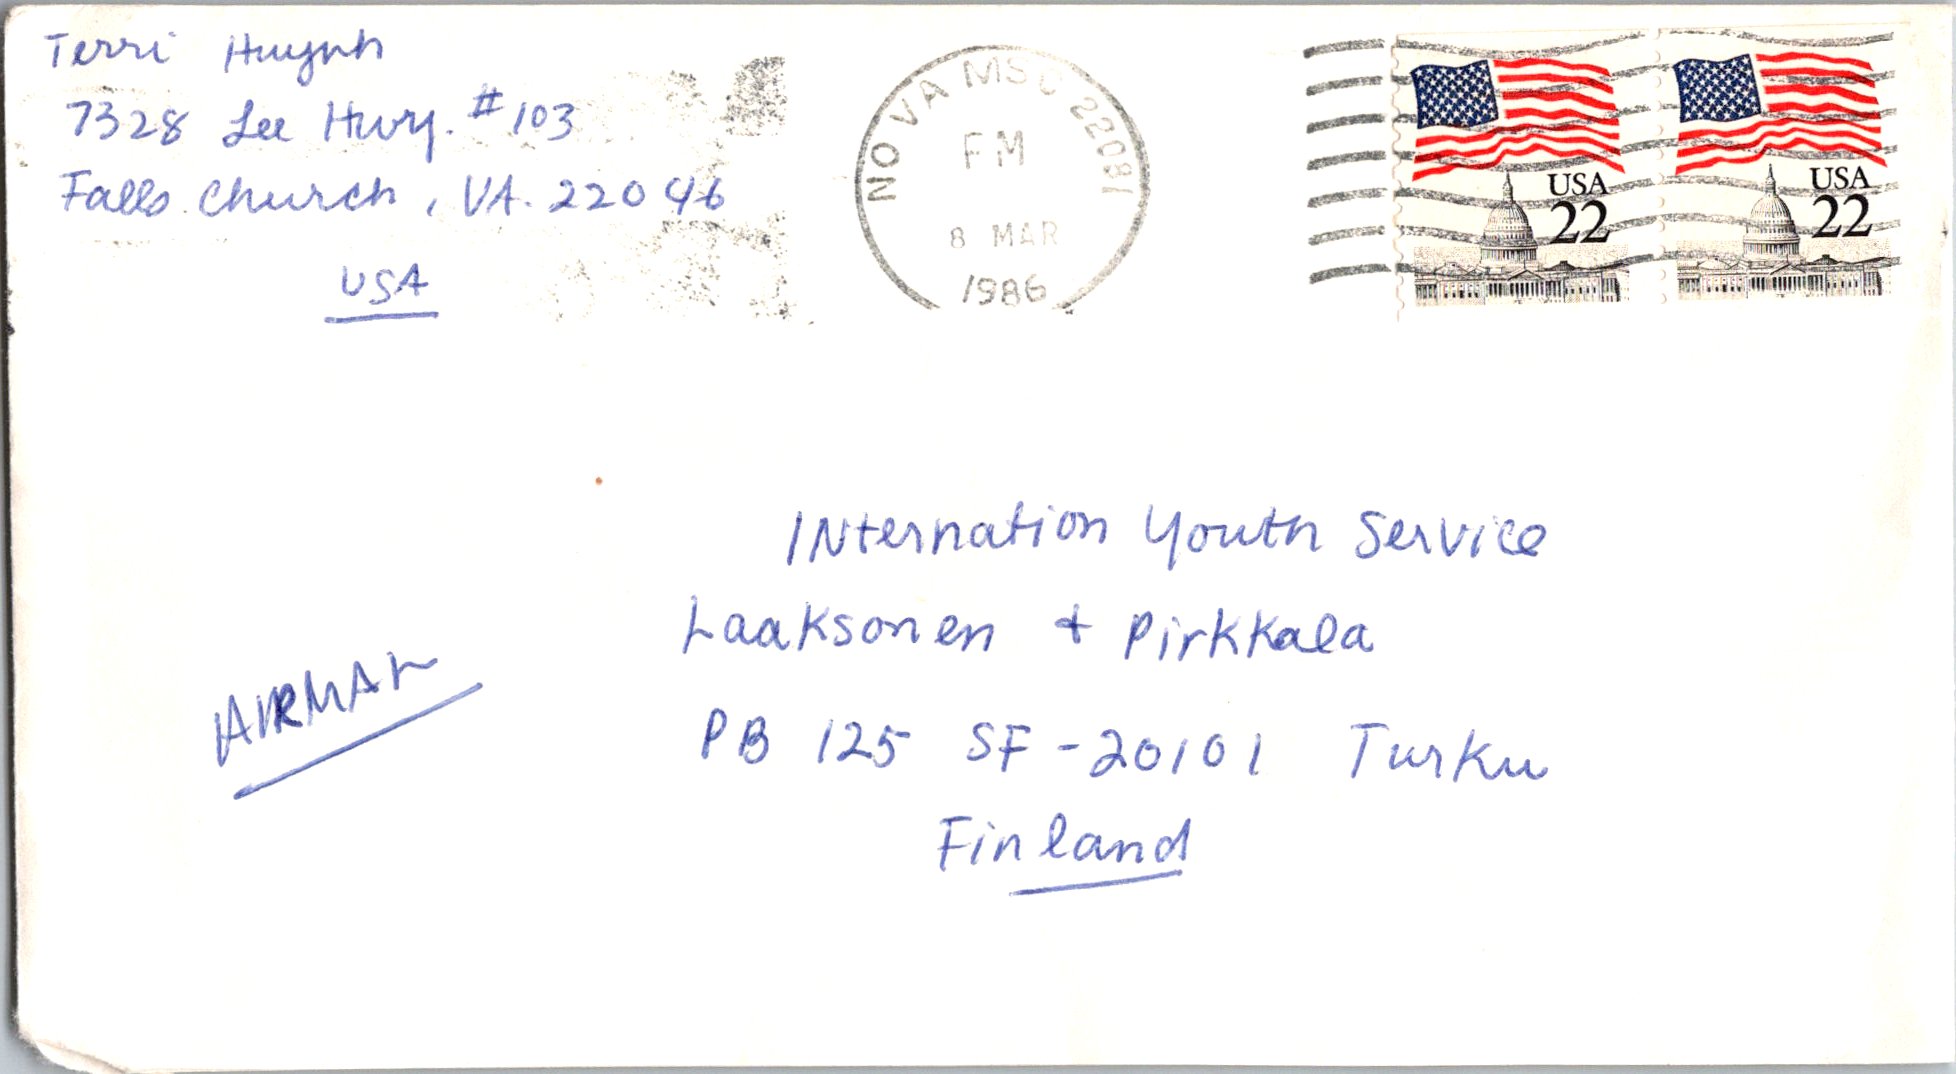 Terri Huynh
7328 Lee Hwy. #103
Falls Church, VA. 22046
USA
NO VA MSC 22081
PM
8 MAR
1986
USA
22
USA
22
INternation Youth Service
Laaksonen + Pirkkala
AIRMAIL
PB 125 SF-20101 Turku
Finland